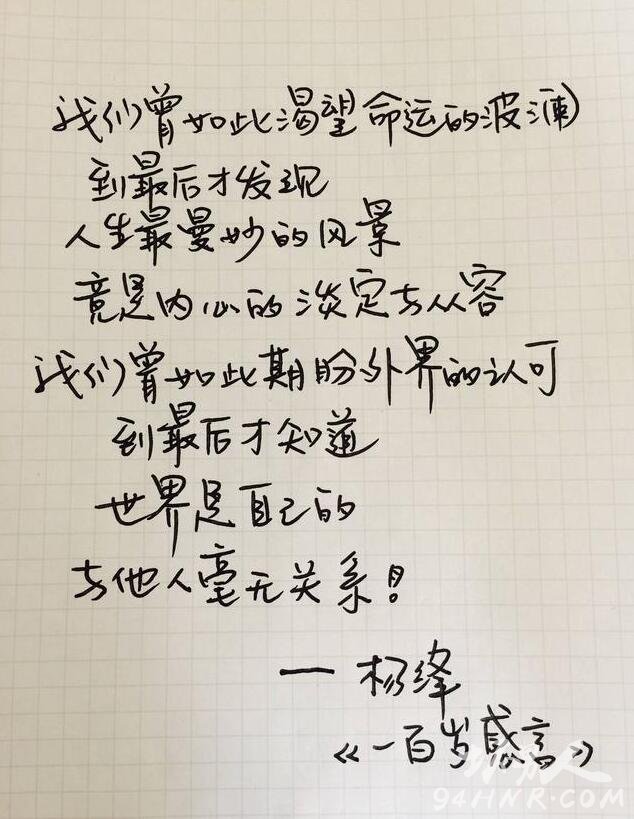 我们曾如此渴望命运的波澜
到最后才发现
人生最曼妙的风景
竟是内心的淡定与从容
我们曾如此期盼外界的认可
到最后才知道
世界是自己的
与他人毫无关系!
— 杨绛
《一百岁感言》
94HNR.COM